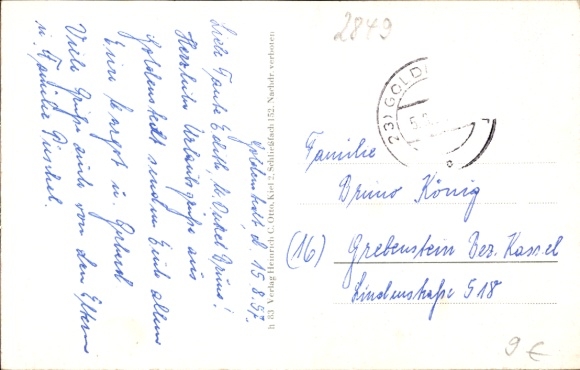 2849
(23) GOLD
Goldenstedt, d. 15.8.57.
Liebe Tante Edith, lb. Onkel Bruno!
Herzliche Urlaubsgrüße aus
Goldenstedt senden Euch allen
Eure Margot u. Gerhard
Viele Grüße auch von den Eltern
u. Familie Püschel.
h 53 Verlag Heinrich C. Otto, Kiel 2, Schließfach 152. Nachdr. verboten
Familie
Bruno König
(16) Grebenstein Bez. Kassel
Lindenstraße 518
9 €